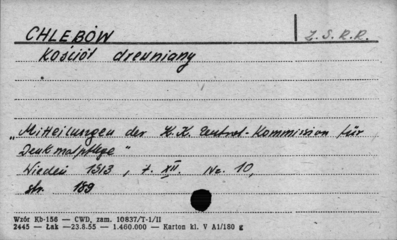 CHLEBÓW
Z. S. R. R.
Kościół drewniany
"Mitteilungen der K. K. Zentral-Kommission für
Denkmalpflege"
Wiedeń 1913, t. XII. Nr. 10,
str. 189
Wzór Kb-158 — CWD, zam. 10837/T-1/II
2445 — Łak —23.8.55 — 1.460.000 — Karton kl. V A1/180 g